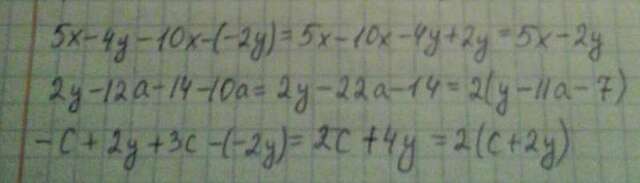 5x-4y-10x-(-2y)=5x-10x-4y+2y=5x-2y
2y-12a-14-10a=2y-22a-14=2(y-11a-7)
-c+2y+3c-(-2y)=2c+4y=2(c+2y)